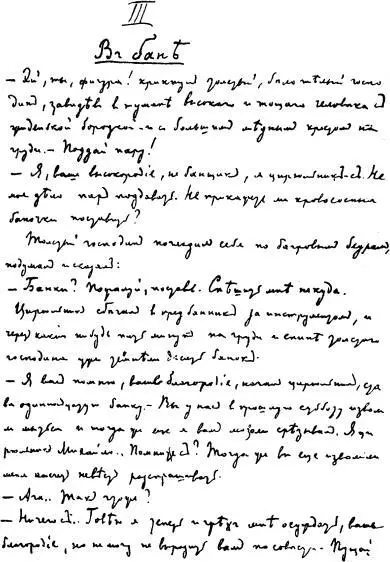 III
Въ банѣ
— Эй, ты, фигура! крикнул толстый, белотелый госпо
дин, завидев в тумане высокого и тощего человека с
жиденькой бородкой и с большим медным крестом на
груди. — Поддай пару!
— Я, ваше высокородіе, не банщик, я цирюльник-с. Не
мое дело пар поддавать. Не прикажете ли кровососные
баночки поставить?
Толстый господин погладил себя по багровым бедрам,
подумал и сказал:
— Банки? Пожалуй, поставь. Спѣшить мнѣ некуда.
Цирюльник сбегал в предбанник за инструментом, и
через какие нибудь пять минут на груди и спине толстого
господина уже темнели десять банок.
— Я вас помню, ваше благородіе, начал цирюльник, ставя
одиннадцатую банку. — Вы у нас в прошлую субботу изволи
ли мыться и тогда же еще я вам мозоли срезывал. Я ци
рюльник Михайло.. Помните-с? Тогда же вы еще изволили
меня насчет невест расспрашивать.
— Ага.. Так что же?
— Ничего-с.. Говею я теперь и грех мнѣ осуждать, ваше
благородіе, но не могу не выразить вам по совести. Пущай